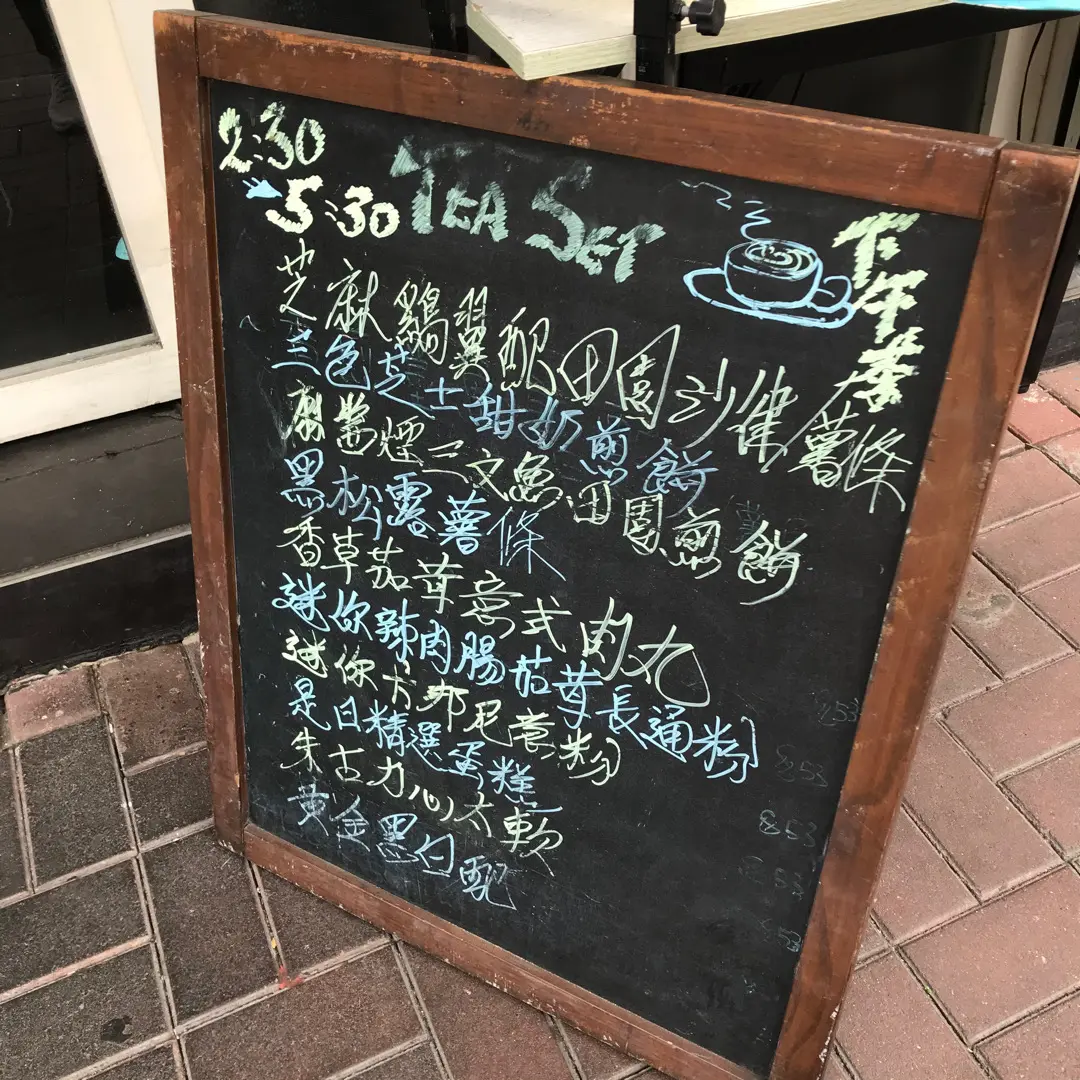 2:30
5:30
TEA SET
下午茶
芝麻鷄翼配田園沙律/薯條
三色芝士甜奶煎餅
煙三文魚田園煎餅
黑松露薯條
香草茄茸意式肉丸
迷你辣肉腸茄茸長通粉
迷你卡邦尼意粉
是日精選蛋糕
朱古力心太軟
黃金黑白配
&53
53
53